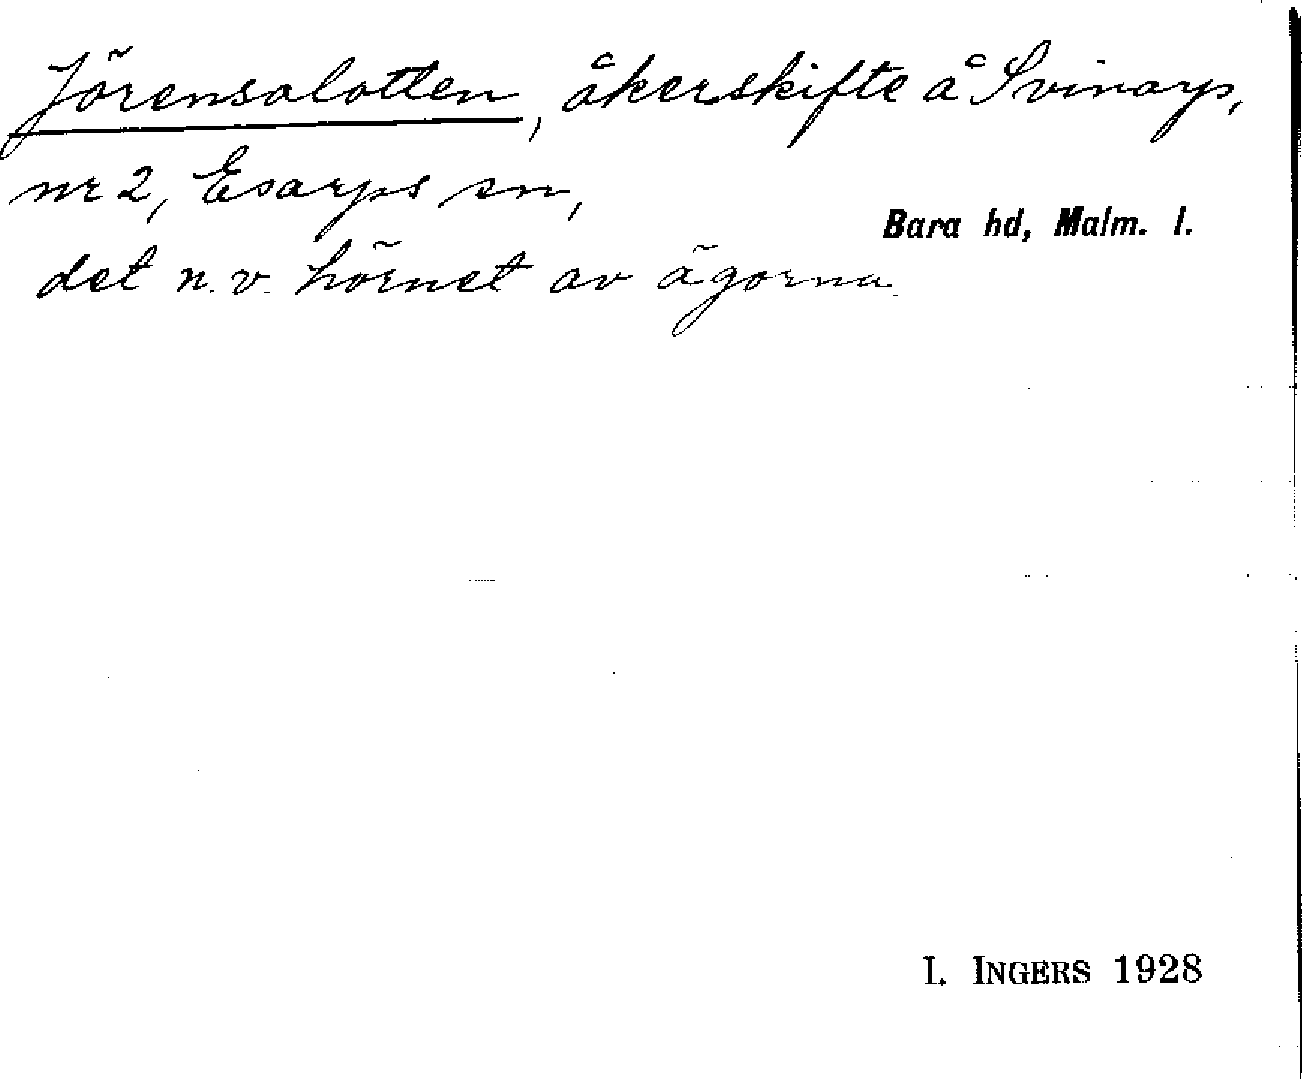 Jörensalotten, åkerskifte å Svinarp,
nr 2, Esarps sn,
Bara hd, Malm. l.
det n.v. hörnet av ägorna.
I. INGERS 1928